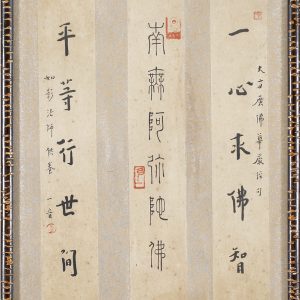 大方广佛華嚴經句
一心求佛智
南無阿弥陀佛
平等行世間
如影法師供養
一音